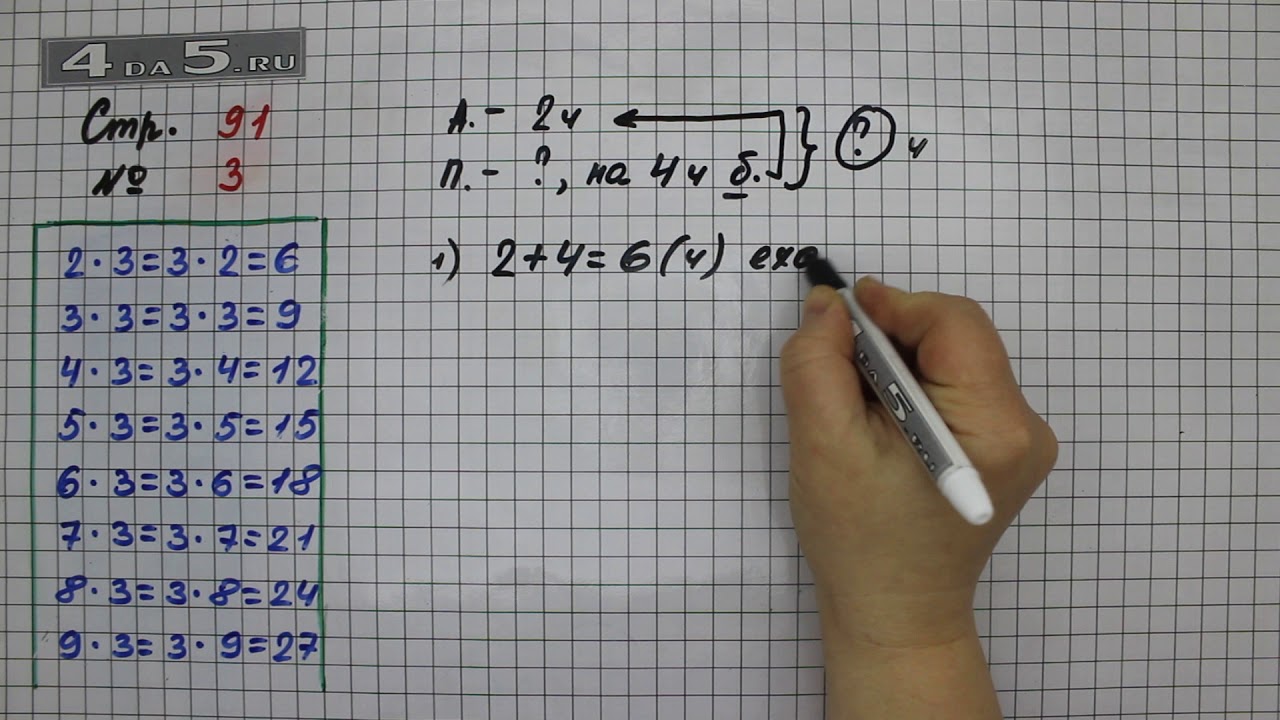 4DA5.RU
Стр. 91
№ 3
2·3=3·2=6
3·3=3·3=9
4·3=3·4=12
5·3=3·5=15
6·3=3·6=18
7·3=3·7=21
8·3=3·8=24
9·3=3·9=27
А. - 2ч
П. - ?, на 4ч б. } ? ч
1) 2+4=6(ч) еха
DA 5.RU